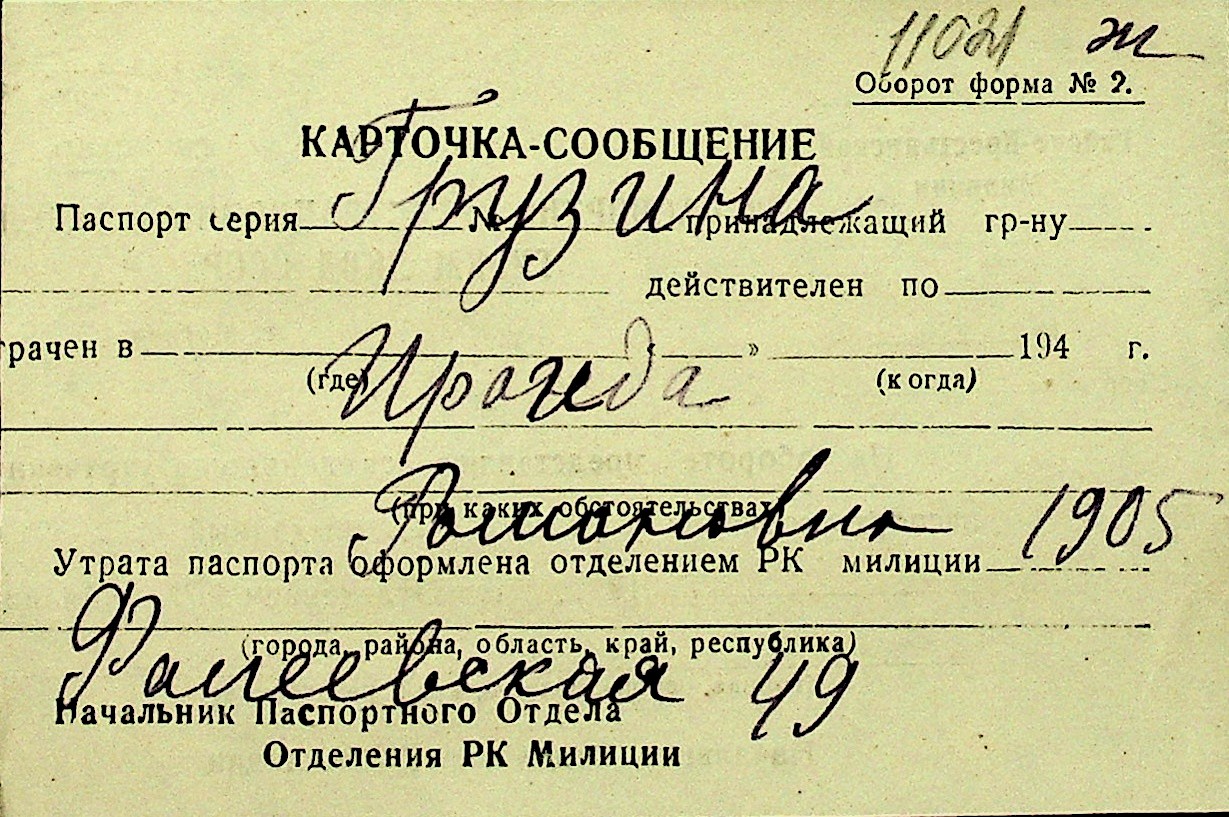 11021 ж
Оборот форма № 2.
КАРТОЧКА-СООБЩЕНИЕ
Грузина
Паспорт серия № принадлежащий гр-ну
действителен по
трачен в » 194 г.
(где) (когда)
Ираида
(при каких обстоятельствах)
Романовна 1905
Утрата паспорта оформлена отделением РК милиции
(города, района, область, край, республика)
Фалеевская 49
Начальник Паспортного Отдела
Отделения РК Милиции